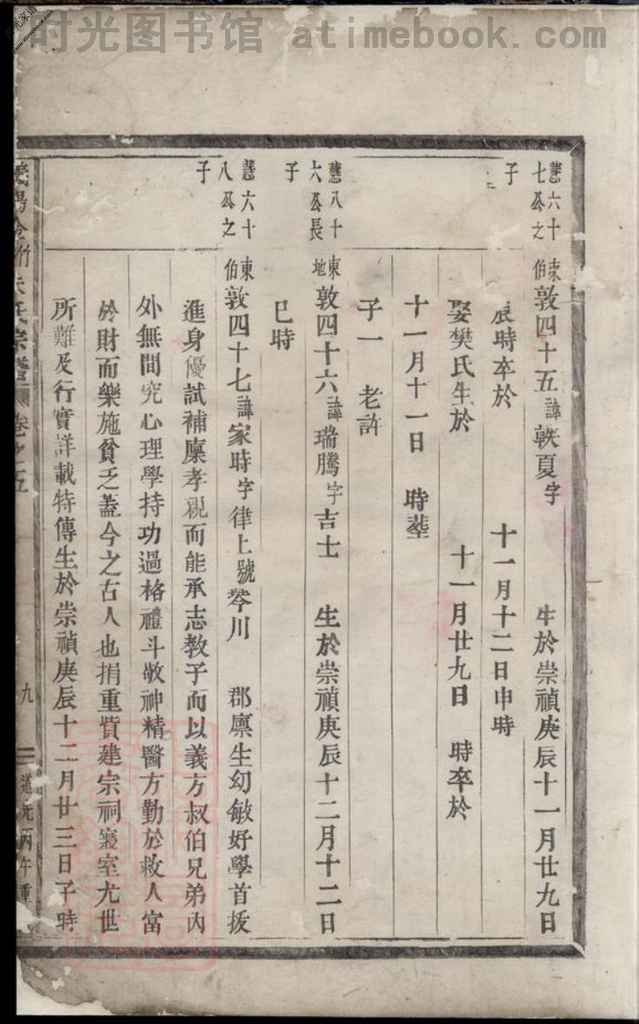 时光图书馆 atimebook.com
慧六十七公之子
東伯敦四十五諱 夏字 生於崇禎庚辰十一月廿九日
辰時卒於 十一月十二日申時
娶樊氏生於 十一月廿九日 時卒於
十一月十一日 時塟
子一 老許
慧八十六公長子
東地敦四十六諱瑞騰字吉士 生於崇禎庚辰十二月十二日
巳時
慧六十八公之子
東伯敦四十七諱家時字律上號 川 郡廪生幼敏好學首拔
進身優試補廪孝親而能承志教子而以義方叔伯兄弟內
外無間究心理學持功過格禮斗敬神精醫方勤於救人富
於財而樂施貧乏葢今之古人也捐重貲建宗祠寢室尤世
所難及行實詳載特傳生於崇禎庚辰十二月廿三日子時
氏宗譜 卷之五 九 道光丙午重